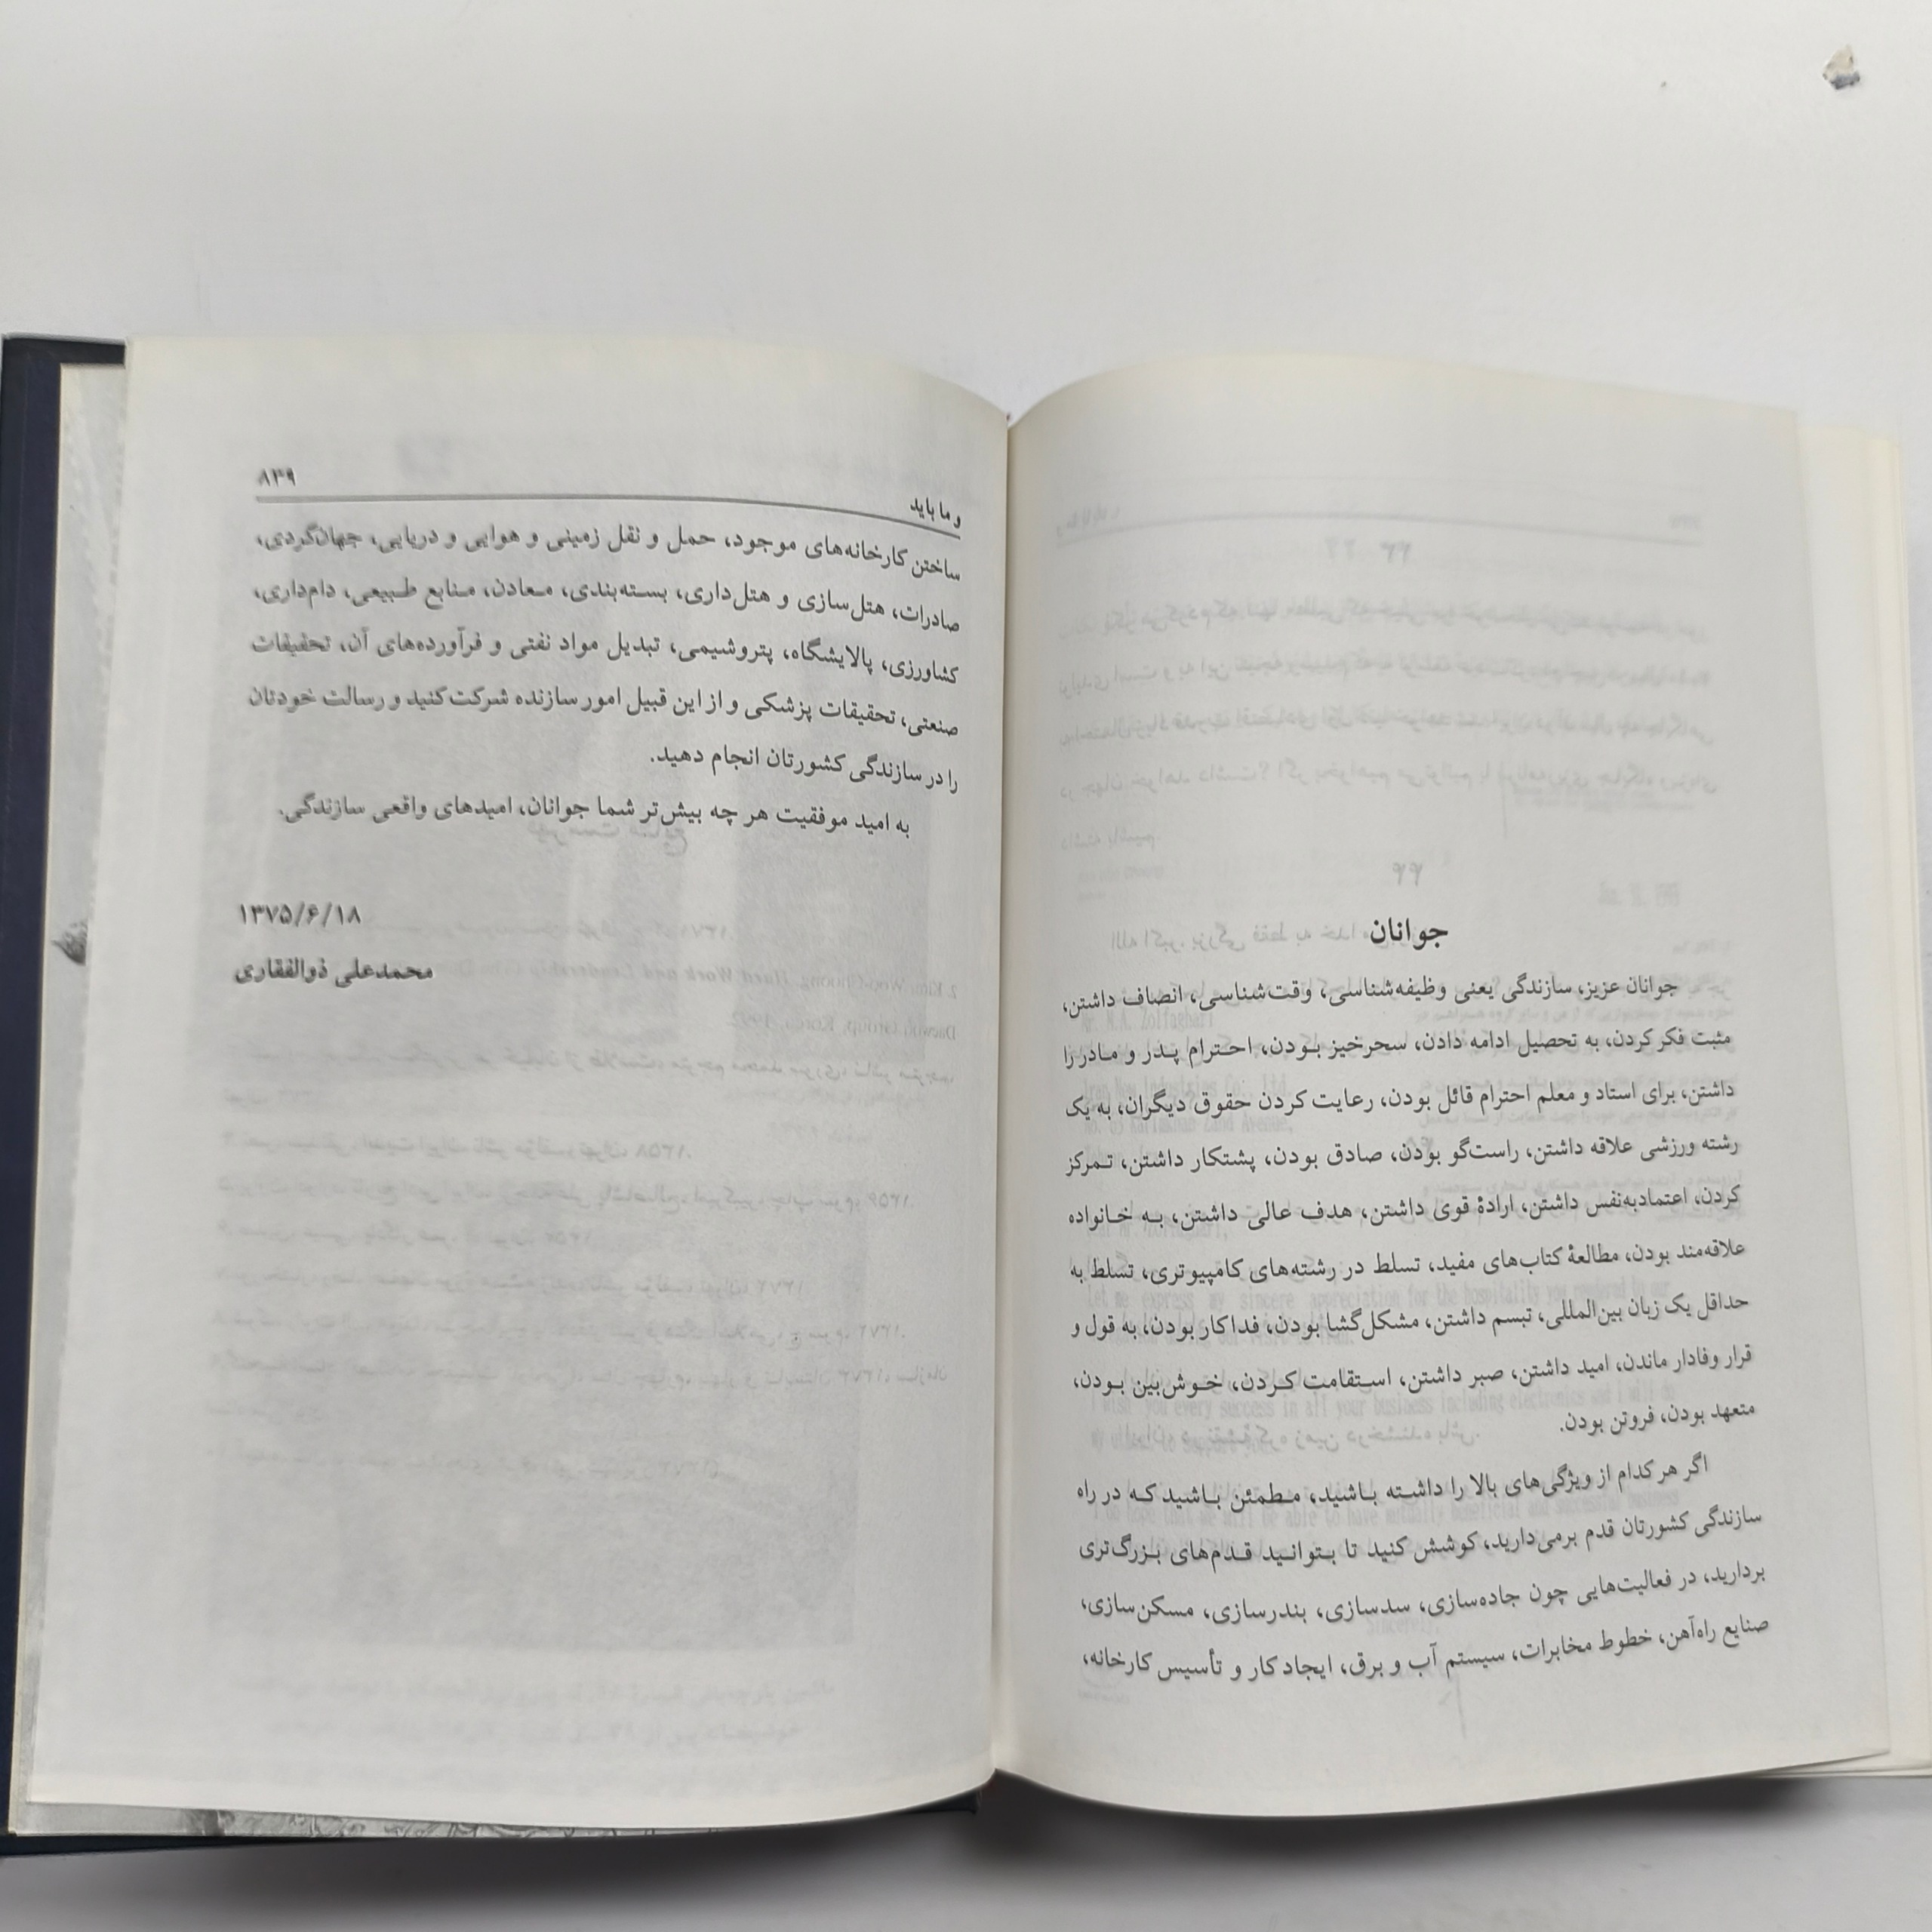 ۴۴
جوانان
جوانان عزیز، سازندگی یعنی وظیفه‌شناسی، وقت‌شناسی، انصاف داشتن،
مثبت فکر کردن، به تحصیل ادامه دادن، سحرخیز بودن، احترام پدر و مادر را
داشتن، برای استاد و معلم احترام قائل بودن، رعایت کردن حقوق دیگران، به یک
رشته ورزشی علاقه داشتن، راست‌گو بودن، صادق بودن، پشتکار داشتن، تمرکز
کردن، اعتمادبه‌نفس داشتن، ارادهٔ قوی داشتن، هدف عالی داشتن، به خانواده
علاقه‌مند بودن، مطالعهٔ کتاب‌های مفید، تسلط در رشته‌های کامپیوتری، تسلط به
حداقل یک زبان بین‌المللی، تبسم داشتن، مشکل‌گشا بودن، فداکار بودن، به قول و
قرار وفادار ماندن، امید داشتن، صبر داشتن، استقامت کردن، خوش‌بین بودن،
متعهد بودن، فروتن بودن.
اگر هر کدام از ویژگی‌های بالا را داشته باشید، مطمئن باشید که در راه
سازندگی کشورتان قدم برمی‌دارید، کوشش کنید تا بتوانید قدم‌های بزرگ‌تری
بردارید، در فعالیت‌هایی چون جاده‌سازی، سدسازی، بندرسازی، مسکن‌سازی،
صنایع راه‌آهن، خطوط مخابرات، سیستم آب و برق، ایجاد کار و تأسیس کارخانه،
و ما باید ۸۳۹
ساختن کارخانه‌های موجود، حمل و نقل زمینی و هوایی و دریایی، جهان‌گردی،
صادرات، هتل‌سازی و هتل‌داری، بسته‌بندی، معادن، منابع طبیعی، دام‌داری،
کشاورزی، پالایشگاه، پتروشیمی، تبدیل مواد نفتی و فرآورده‌های آن، تحقیقات
صنعتی، تحقیقات پزشکی و از این قبیل امور سازنده شرکت کنید و رسالت خودتان
را در سازندگی کشورتان انجام دهید.
به امید موفقیت هر چه بیش‌تر شما جوانان، امیدهای واقعی سازندگی.
۱۳۷۵/۶/۱۸
محمدعلی ذوالفقاری